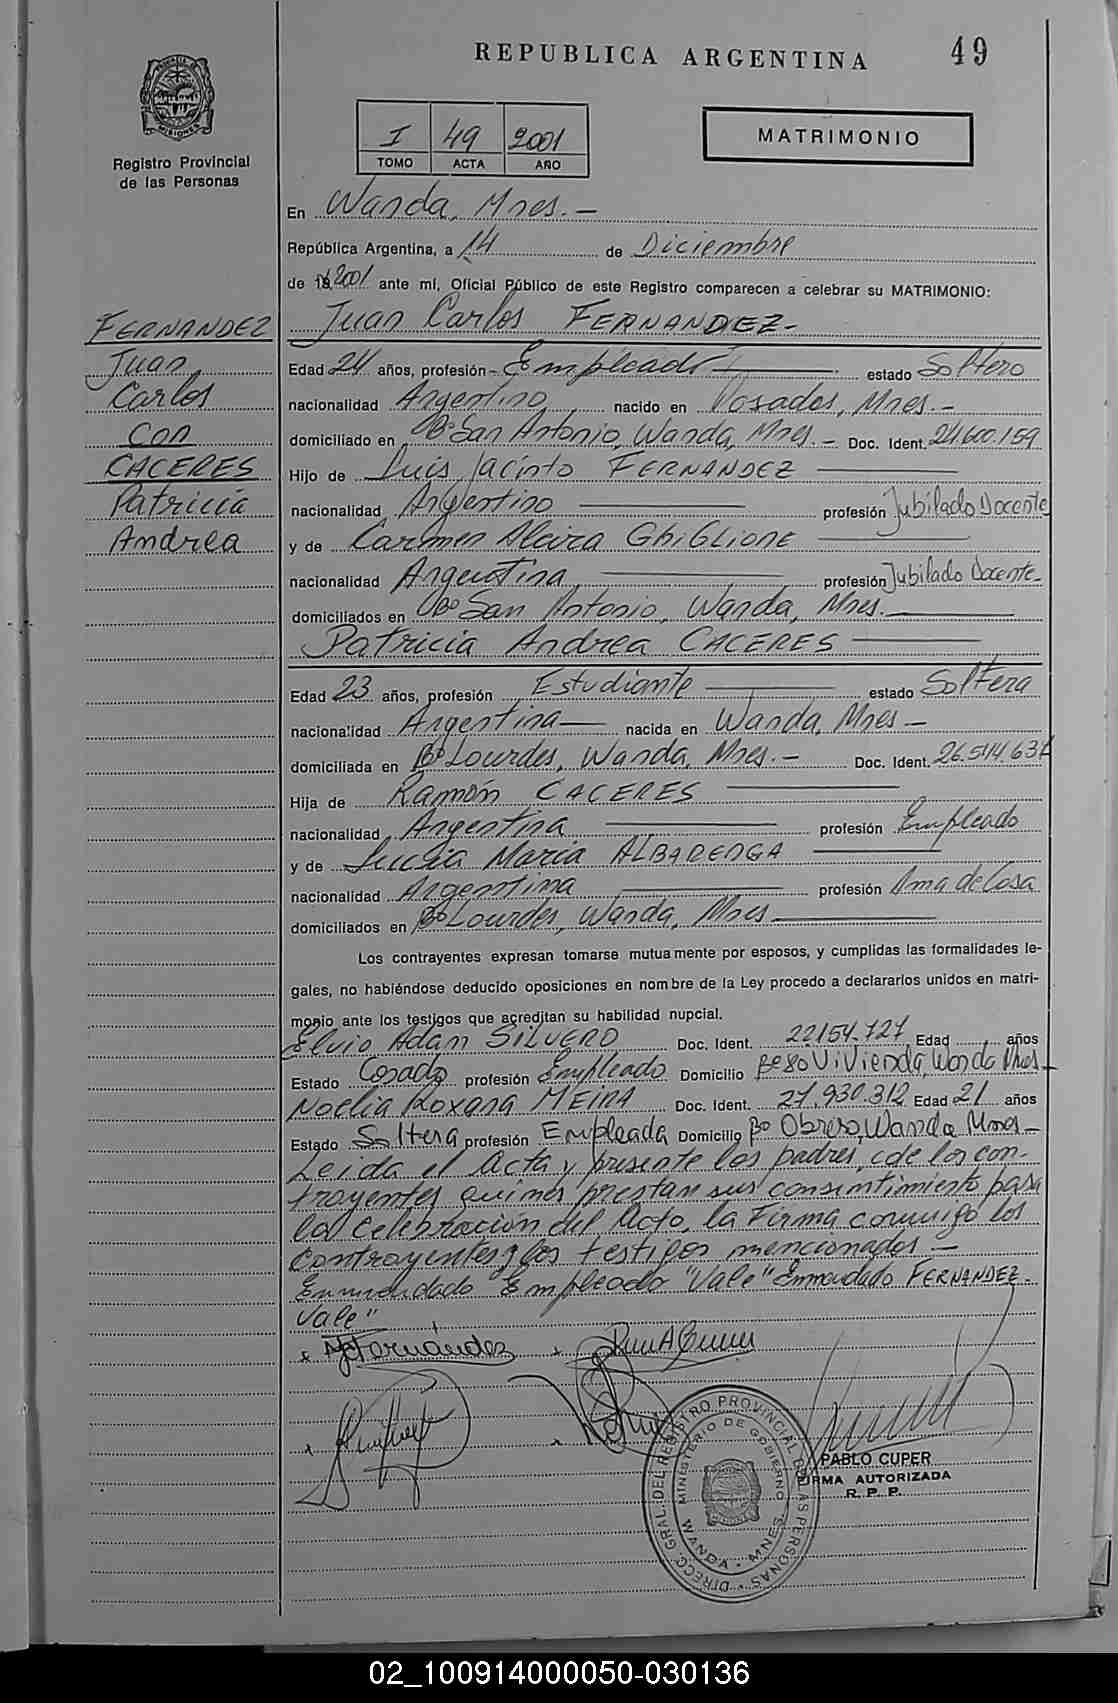 REPUBLICA ARGENTINA 49
Registro Provincial
de las Personas
I 49 2001
TOMO ACTA AÑO
MATRIMONIO
FERNANDEZ
Juan
Carlos
Con
CACERES
Patricia
Andrea
En Wanda, Mnes.-
República Argentina, a 14 de Diciembre
de 2001 ante mí, Oficial Público de este Registro comparecen a celebrar su MATRIMONIO:
Juan Carlos FERNANDEZ-
Edad 24 años, profesión Empleado estado Soltero
nacionalidad Argentino nacido en Posadas, Mnes.-
domiciliado en Bº San Antonio, Wanda, Mnes.- Doc. Ident. 24.600.159
Hijo de Luis Jacinto FERNANDEZ
nacionalidad Argentino profesión Jubilado Docente
y de Carmen Alcira GhiGlione
nacionalidad Argentina profesión Jubilado Docente-
domiciliados en Bº San Antonio, Wanda, Mnes.
Patricia Andrea CACERES
Edad 23 años, profesión Estudiante estado Soltera
nacionalidad Argentina nacida en Wanda, Mnes-
domiciliada en Bº Lourdes, Wanda, Mnes.- Doc. Ident.
Hija de Ramón CACERES
nacionalidad Argentina profesión Empleado
y de Lucia Maria ALBARENGA
nacionalidad Argentina profesión Ama de Casa
domiciliados en Bº Lourdes, Wanda, Mnes
Los contrayentes expresan tomarse mutuamente por esposos, y cumplidas las formalidades le-
gales, no habiéndose deducido oposiciones en nombre de la Ley procedo a declararlos unidos en matri-
monio ante los testigos que acreditan su habilidad nupcial.
Elvio Adan SILVERO Doc. Ident. 22.154.727 Edad años
Estado Casado profesión Empleado Domicilio Bº 80 Vivienda, Wanda Mnes-
Noelia Roxana MEIRA Doc. Ident. 27.930.312 Edad 21 años
Estado Soltera profesión Empleada Domicilio Bº Obrero, Wanda Mnes-
Leida el Acta y presente los padres, de los con-
trayentes quienes prestan sus consentimiento para
la Celebración del Acto, la Firma conmigo los
Contrayentes y los testigos mencionados-
Enmendado Empleado "Vale" Enmendado FERNANDEZ-
Vale"
Fernández
PABLO CUPER
FIRMA AUTORIZADA
R. P. P.
DIRECC. GRAL. DEL REGISTRO PROVINCIAL DE LAS PERSONAS
MINISTERIO DE GOBIERNO
WANDA - MNES.
02_100914000050-030136